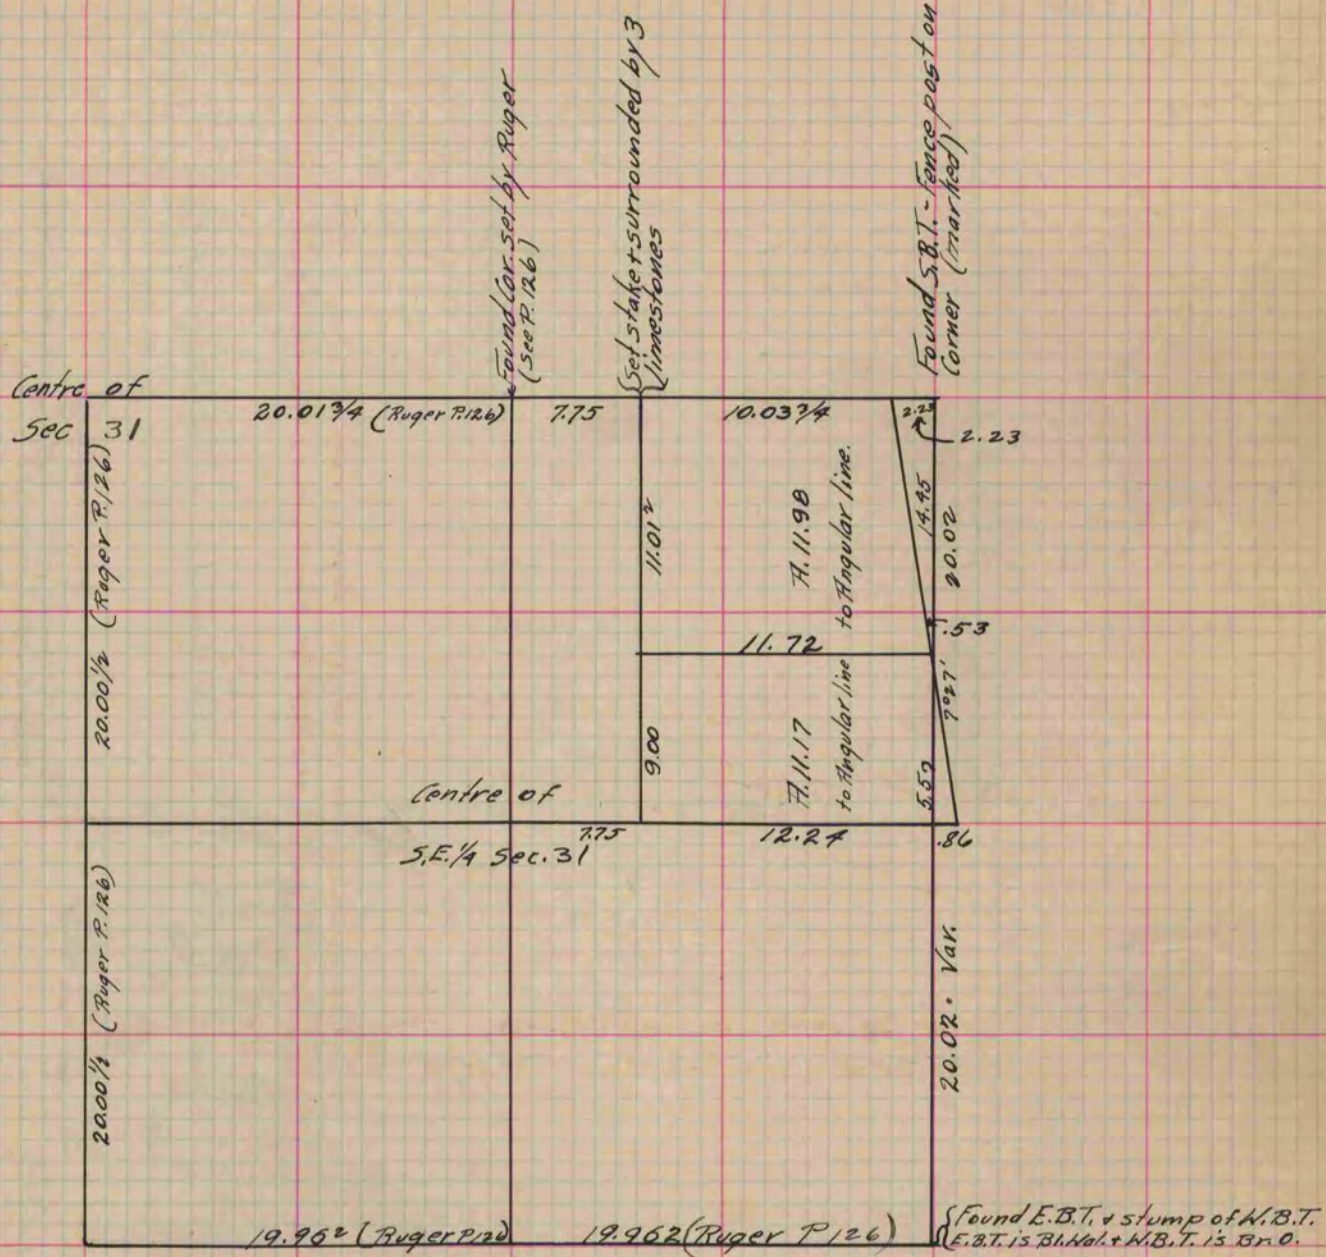 Found Cor. set by Ruger
(see P. 126)
Set stake & surrounded by 3
limestones
Found S.B.T. - Fence post on
Corner (marked)
Centre of
Sec 31
20.01 3/4 (Ruger P. 126)
7.75
10.03 3/4
2.23
2.23
20.00 1/2 (Ruger P. 126)
11.01²
A. 11.98
to Angular line.
14.45
20.02
.53
11.72
9.00
A. 11.17
to Angular line
7°27'
5.52
Centre of
S.E. 1/4 Sec. 31
7.75
12.24
.86
20.00 1/2 (Ruger P. 126)
20.02 . Var.
19.96² (Ruger P 126)
19.962 (Ruger P 126)
Found E.B.T. & stump of W.B.T.
E.B.T. is Bl. Wal. & W.B.T. is Br. O.